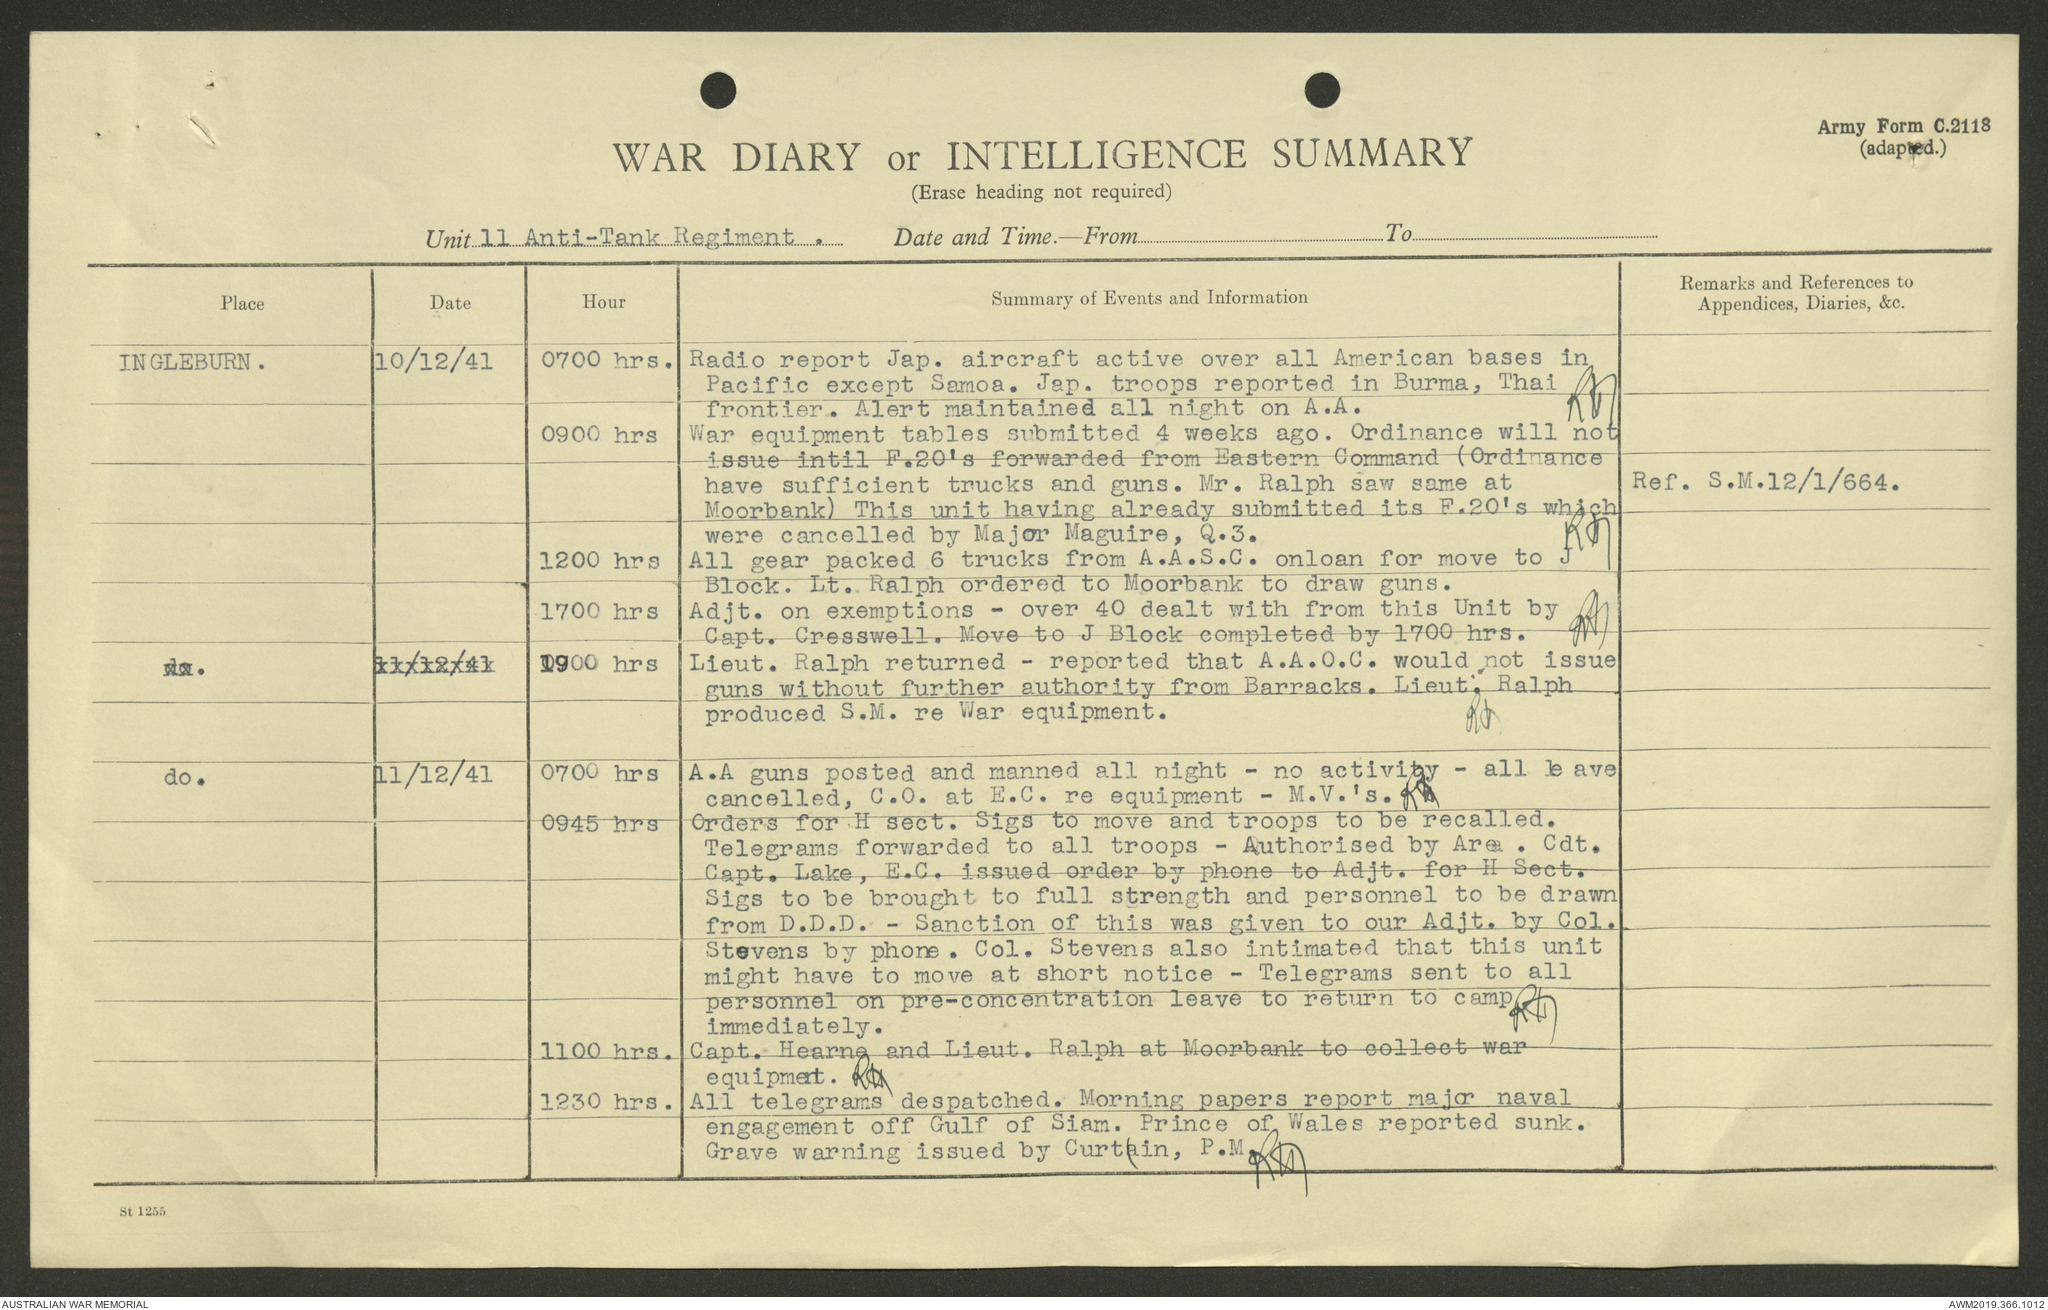 Army Form C.2118
(adapted.)
WAR DIARY or INTELLIGENCE SUMMARY
(Erase heading not required)
Unit 11 Anti-Tank Regiment . Date and Time.—From To
Place Date Hour Summary of Events and Information Remarks and References to Appendices, Diaries, &c.
INGLEBURN. 10/12/41 0700 hrs. Radio report Jap. aircraft active over all American bases in
Pacific except Samoa. Jap. troops reported in Burma, Thai
frontier. Alert maintained all night on A.A.
0900 hrs War equipment tables submitted 4 weeks ago. Ordinance will not
issue intil F.20's forwarded from Eastern Command (Ordinance
have sufficient trucks and guns. Mr. Ralph saw same at Ref. S.M.12/1/664.
Moorbank) This unit having already submitted its F.20's which
were cancelled by Major Maguire, Q.3.
1200 hrs All gear packed 6 trucks from A.A.S.C. onloan for move to J
Block. Lt. Ralph ordered to Moorbank to draw guns.
1700 hrs Adjt. on exemptions - over 40 dealt with from this Unit by
Capt. Cresswell. Move to J Block completed by 1700 hrs.
do. 11/12/41 1900 hrs Lieut. Ralph returned - reported that A.A.O.C. would not issue
guns without further authority from Barracks. Lieut. Ralph
produced S.M. re War equipment.
do. 11/12/41 0700 hrs A.A guns posted and manned all night - no activity - all leave
cancelled, C.O. at E.C. re equipment - M.V.'s.
0945 hrs Orders for H sect. Sigs to move and troops to be recalled.
Telegrams forwarded to all troops - Authorised by Area . Cdt.
Capt. Lake, E.C. issued order by phone to Adjt. for H Sect.
Sigs to be brought to full strength and personnel to be drawn
from D.D.D. - Sanction of this was given to our Adjt. by Col.
Stevens by phone. Col. Stevens also intimated that this unit
might have to move at short notice - Telegrams sent to all
personnel on pre-concentration leave to return to camp
immediately.
1100 hrs. Capt. Hearne and Lieut. Ralph at Moorbank to collect war
equipment.
1230 hrs. All telegrams despatched. Morning papers report major naval
engagement off Gulf of Siam. Prince of Wales reported sunk.
Grave warning issued by Curtain, P.M.
St 1255
AUSTRALIAN WAR MEMORIAL
AWM2019.366.1012